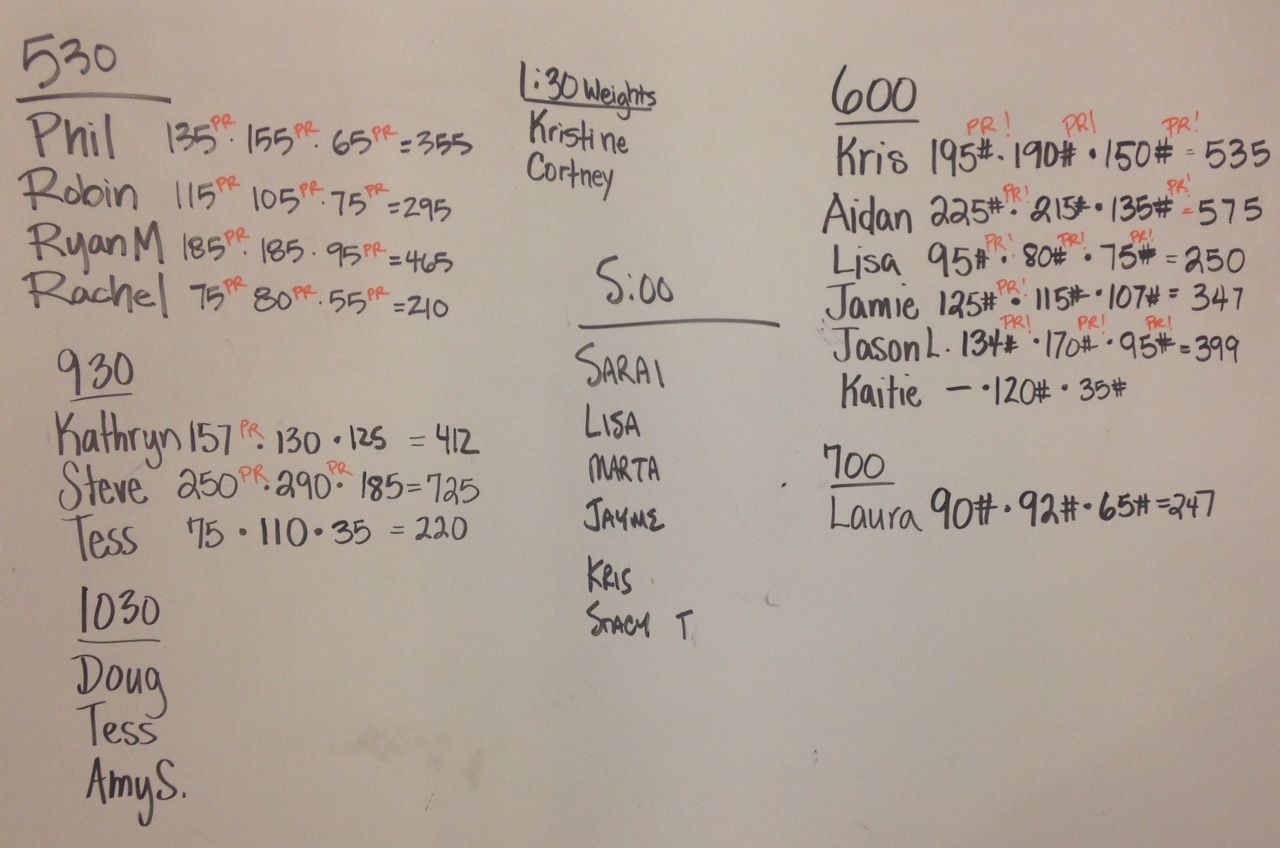 530
Phil 135 PR · 155 PR · 65 PR = 355
Robin 115 PR 105 PR · 75 PR = 295
Ryan M 185 PR · 185 · 95 PR = 465
Rachel 75 PR 80 PR · 55 PR = 210
930
Kathryn 157 PR · 130 · 125 = 412
Steve 250 PR · 290 PR · 185 = 725
Tess 75 · 110 · 35 = 220
1030
Doug
Tess
Amy S.
1:30 Weights
Kristine
Cortney
5:00
SARAI
LISA
MARTA
JAYME
KRIS
STACY T
600
Kris 195# PR! · 190# PR! · 150# PR! = 535
Aidan 225# PR! · 215# · 135# PR! = 575
Lisa 95# PR! · 80# PR! · 75# PR! = 250
Jamie 125# PR! · 115# · 107# = 347
Jason L. 134# PR! · 170# PR! · 95# PR! = 399
Kaitie — · 120# · 35#
700
Laura 90# · 92# · 65# = 247